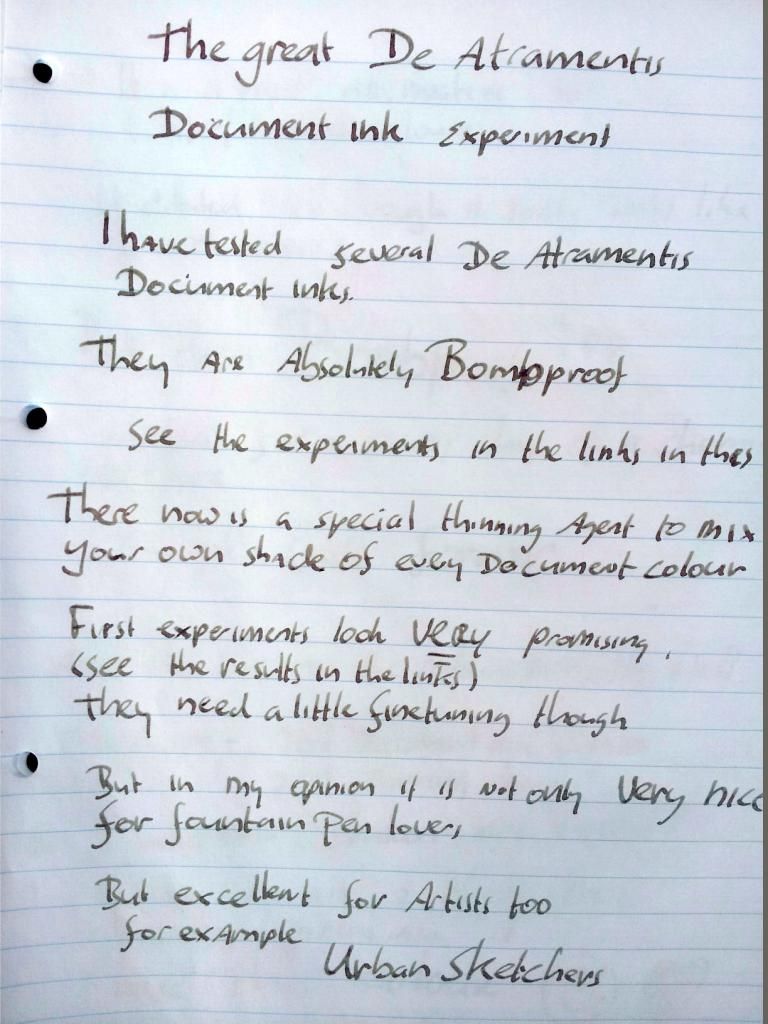 The great De Atramentis
Document ink Experiment
I have tested several De Atramentis
Document inks.
They Are Absolutely Bombproof
See the experiments in the links in this
There now is a special thinning Agent to mix
your own shade of every Document colour
First experiments look VERY promising.
(see the results in the links)
They need a little finetuning though
But in my opinion it is not only very nice
for fountain pen lovers
But excellent for Artists too
for example
Urban Sketchers